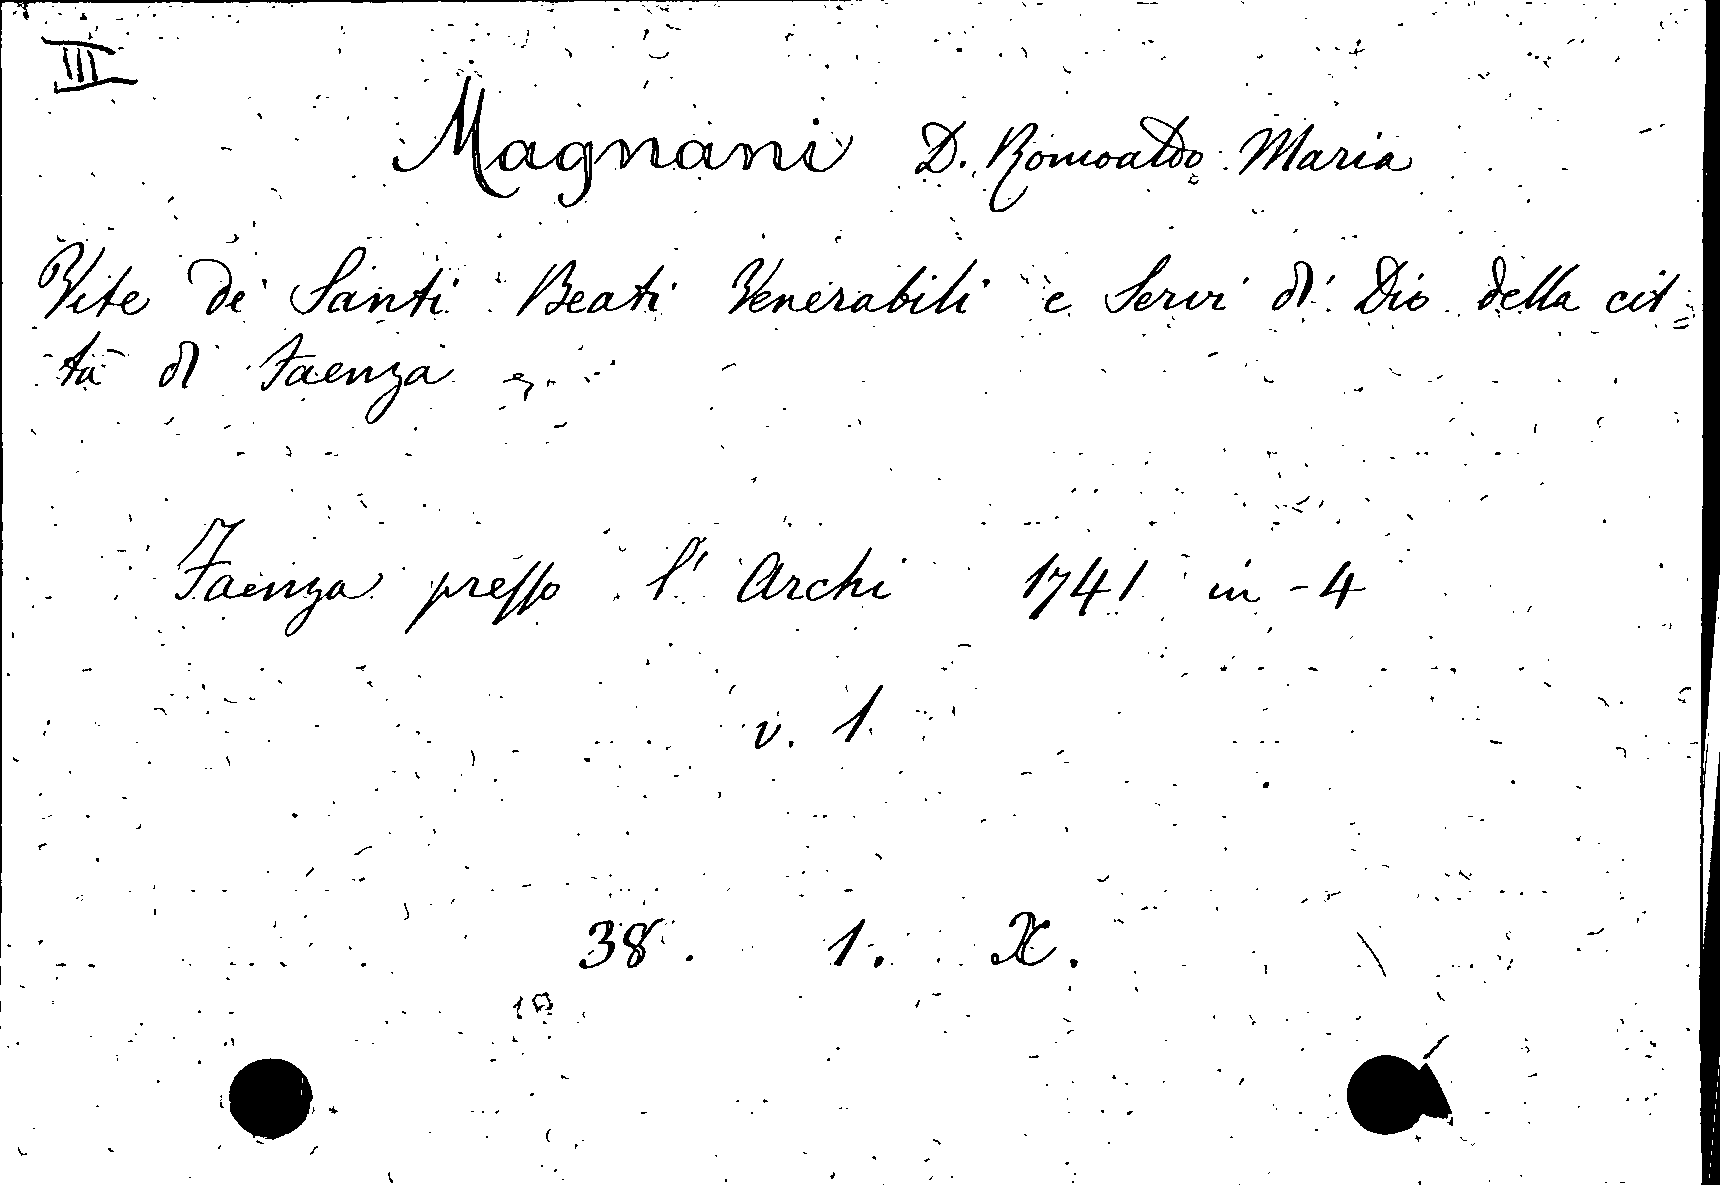 III
Magnani D. Romoaldo Maria
Vite de' Santi Beati Venerabili e Servi di Dio della cit=
tà di Faenza
Faenza presso l'Archi 1741 in-4
v. 1.
38. 1. X.